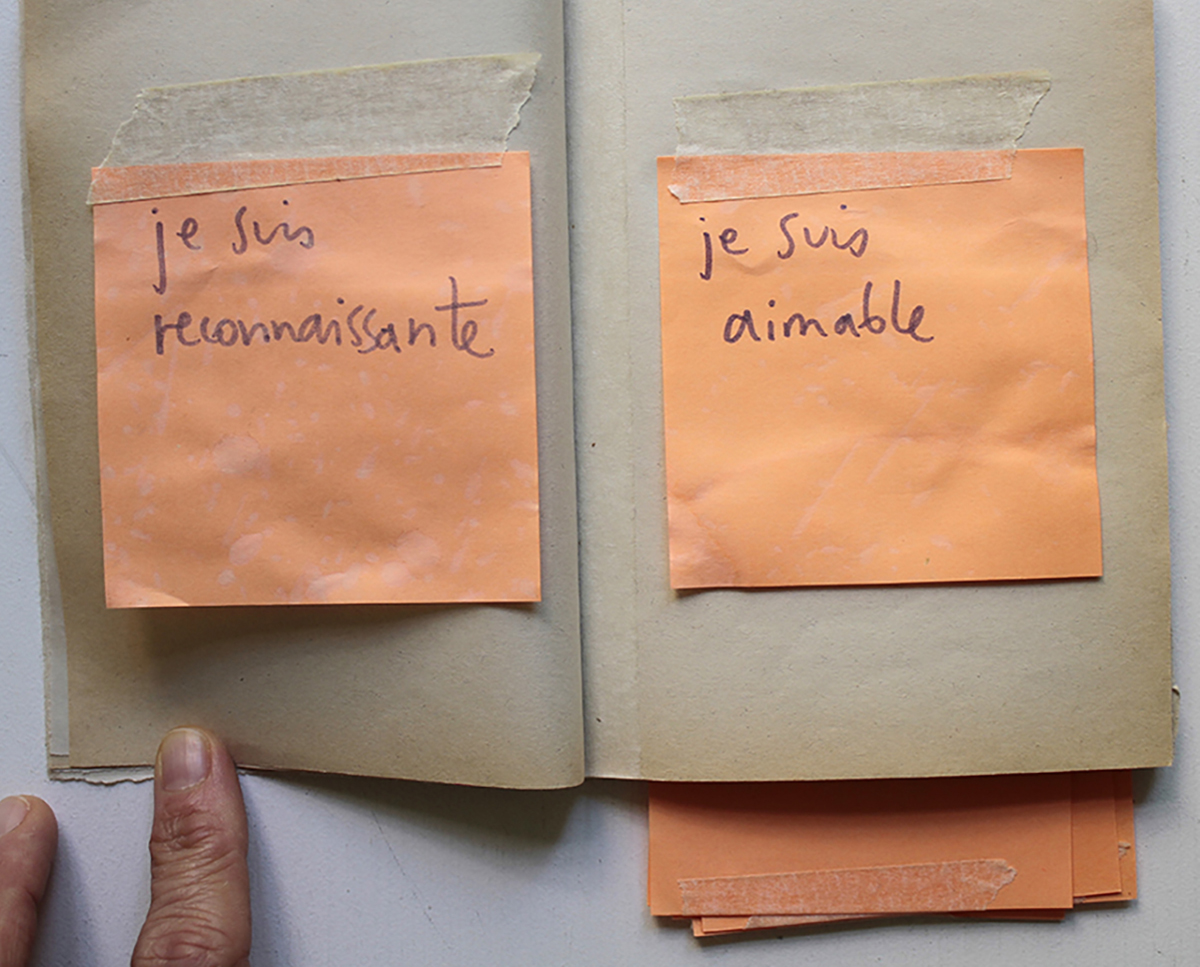 je suis
reconnaissante
je suis
aimable